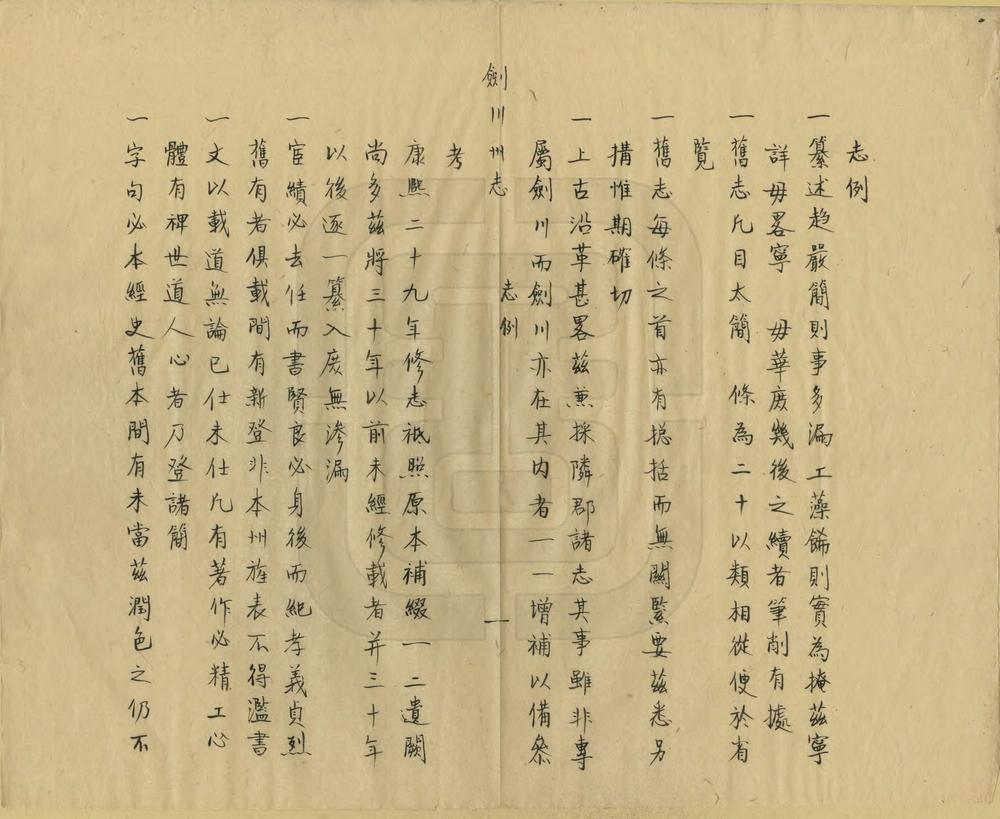 志例
一纂述趋嚴簡則事多漏工藻餙則實為掩茲寧
詳毋畧寧 毋華庻幾後之續者筆削有據
一舊志凢目太簡 條為二十以類相從便於省
覽
一舊志每條之首亦有捴括而無關緊要茲悉另
搆惟期確切
一上古沿革甚畧茲兼採隣郡諸志其事雖非專
屬劍川而劍川亦在其内者一一增補以備叅
劍川州志 志例 一
考
康熈二十九年修志祗照原本補綴一二遺闕
尚多茲將三十年以前未經修載者并三十年
以後逐一纂入庻無滲漏
一宦績必去任而書賢良必身後而紀孝義貞烈
舊有者俱載間有新登非本州旌表不得濫書
一文以載道無論已仕未仕凢有著作必精工心
體有裨世道人心者乃登諸簡
一字句必本經史舊本間有未當茲潤色之仍不